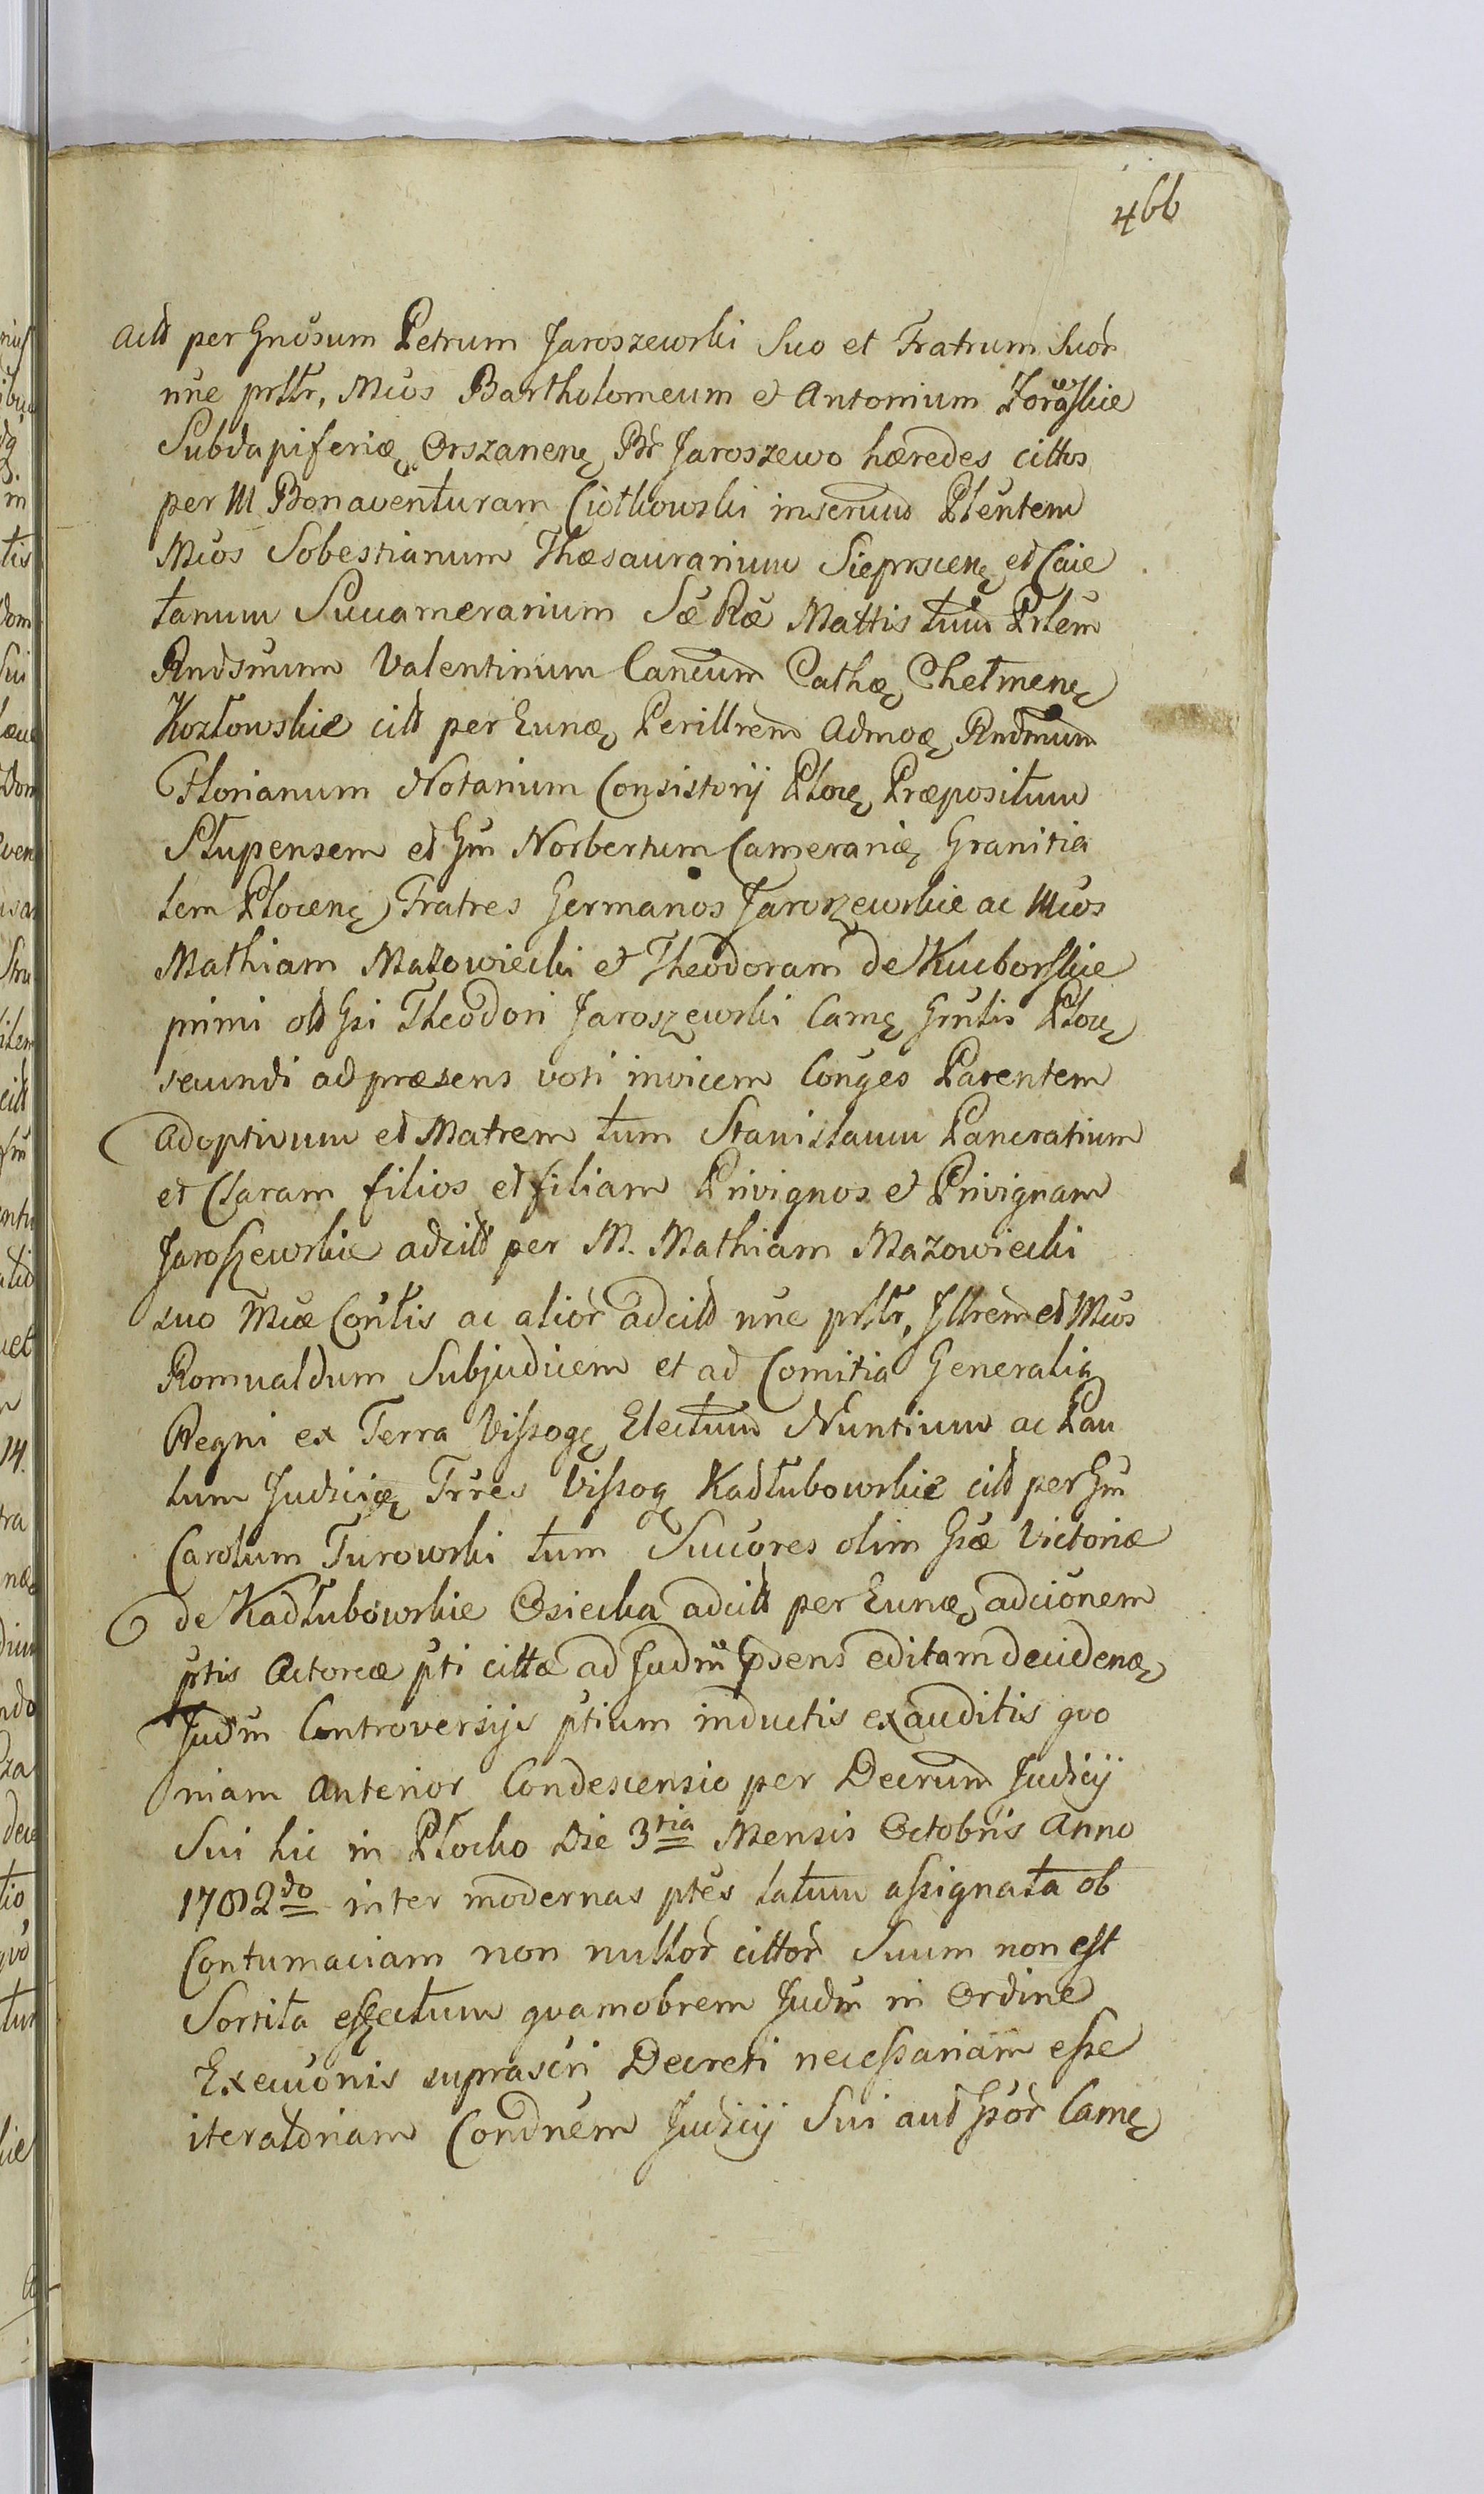 466
acld per Gnosum Petrum Jaroszewski Suo et Fratrum Suor
nne prttr, Mcos Bartholomeum et Antonium Zorawskie
Subdapiferiæ Orszanens Br Jaroszewo hæredes cittos
per M Bonaventuram Ciotkowski inserund Plentem
Mcos Sobestianum Thæsaurarium Sieprscens et Caie
tanum Succamerarium Sæ Ræ Mattis tum Prlem
Rndsmum Valentinum Cancum Cathæ Chełmens
Kozłowskie citt per Eunæ Perillrem Admoæ Rndmum
Florianum Notarium Consistorij Plocs Præpositum
Słupensem et Gm Norbertum Camerariæ Granitia
lem Plocens Fratres Germanos Jaroszewskie ac Mcos
Mathiam Mazowiecki et Theodoram de Kucborskie
primi old Gsi Theodori Jaroszewski Cams Grnlis Plocs
secundi ad præsens voti invicem Conges Parentem
Adoptivum et Matrem tum Stanisłaum Pancratium
et Claram filios et filiam Privignos et Privignam
Jaroszewskie adcitt per M. Mathiam Mazowiecki
suo Mcæ Contis ac alior adcitt nne prttr, Jllrem et Mcos
Romualdum Subjudicem et ad Comitia Generalia
Regni ex Terra Vissogs Electum Nuntium ac Pau
lum Judiciæ Trres Vissog Kadłubowskie citt per Gm
Carolum Turowski tum Succores olim Gsæ Victoriæ
de Kadłubowskie Osiecka adcitt per Eunæ adcionem
ptis Actoreæ pti cittæ ad Judm Psens editam decidenæ
Judm Controversijs ptium inductis exauditis quo
niam Anterior Condescensio per Decrum Judicij
Sui hic in Płocko Die 3tia Mensis Octobris Anno
1782do inter modernas ptes latum assignata ob
Contumaciam non nullor cittor Suum non est
Sortita effectum quamobrem Judm in Ordine
Execuonis suprascri Decreti necessariam esse
iteratoriam Condnem Judicij Sui aud Gsor Cams